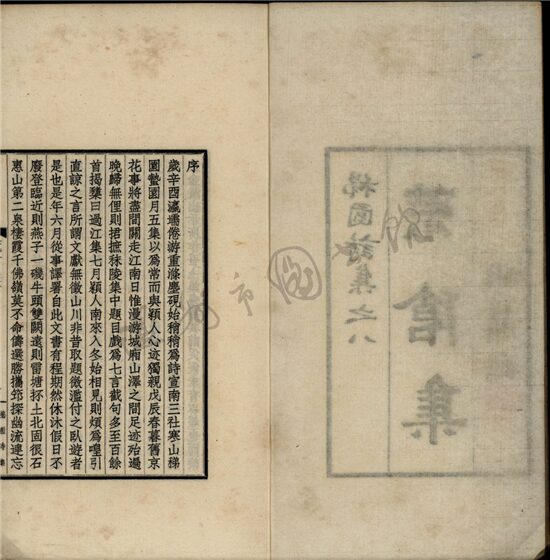 序
歲辛酉瀛壖倦游重滌塵硯始稍稍為詩宣南三社寒山稊
園蟄園月五集以為常而與穎人心迹獨親戊辰春暮舊京
花事將盡間關走江南日惟漫游城廂山澤之間足迹殆遍
晚歸無俚則捃摭秣陵集中題目戲為七言截句多至百餘
首揭櫫曰過江集七月穎人南來入冬始相見則頗為嘡引
直諒之言所謂文獻無徵山川非昔取題微濫付之臥遊者
是也是年六月從事譯署自此文書有程期然休沐假日不
廢登臨近則燕子一磯牛頭雙闕遠則雷塘抔土北固很石
惠山第二泉棲霞千佛嶺莫不命儔選勝攜笻探幽流連忘
稊園詩集之八
集